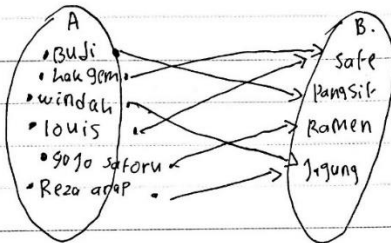 A
Budi
hakgem
windah
louis
gojo satoru
Reza arap
B.
Sate
Pangsit
Ramen
Jagung